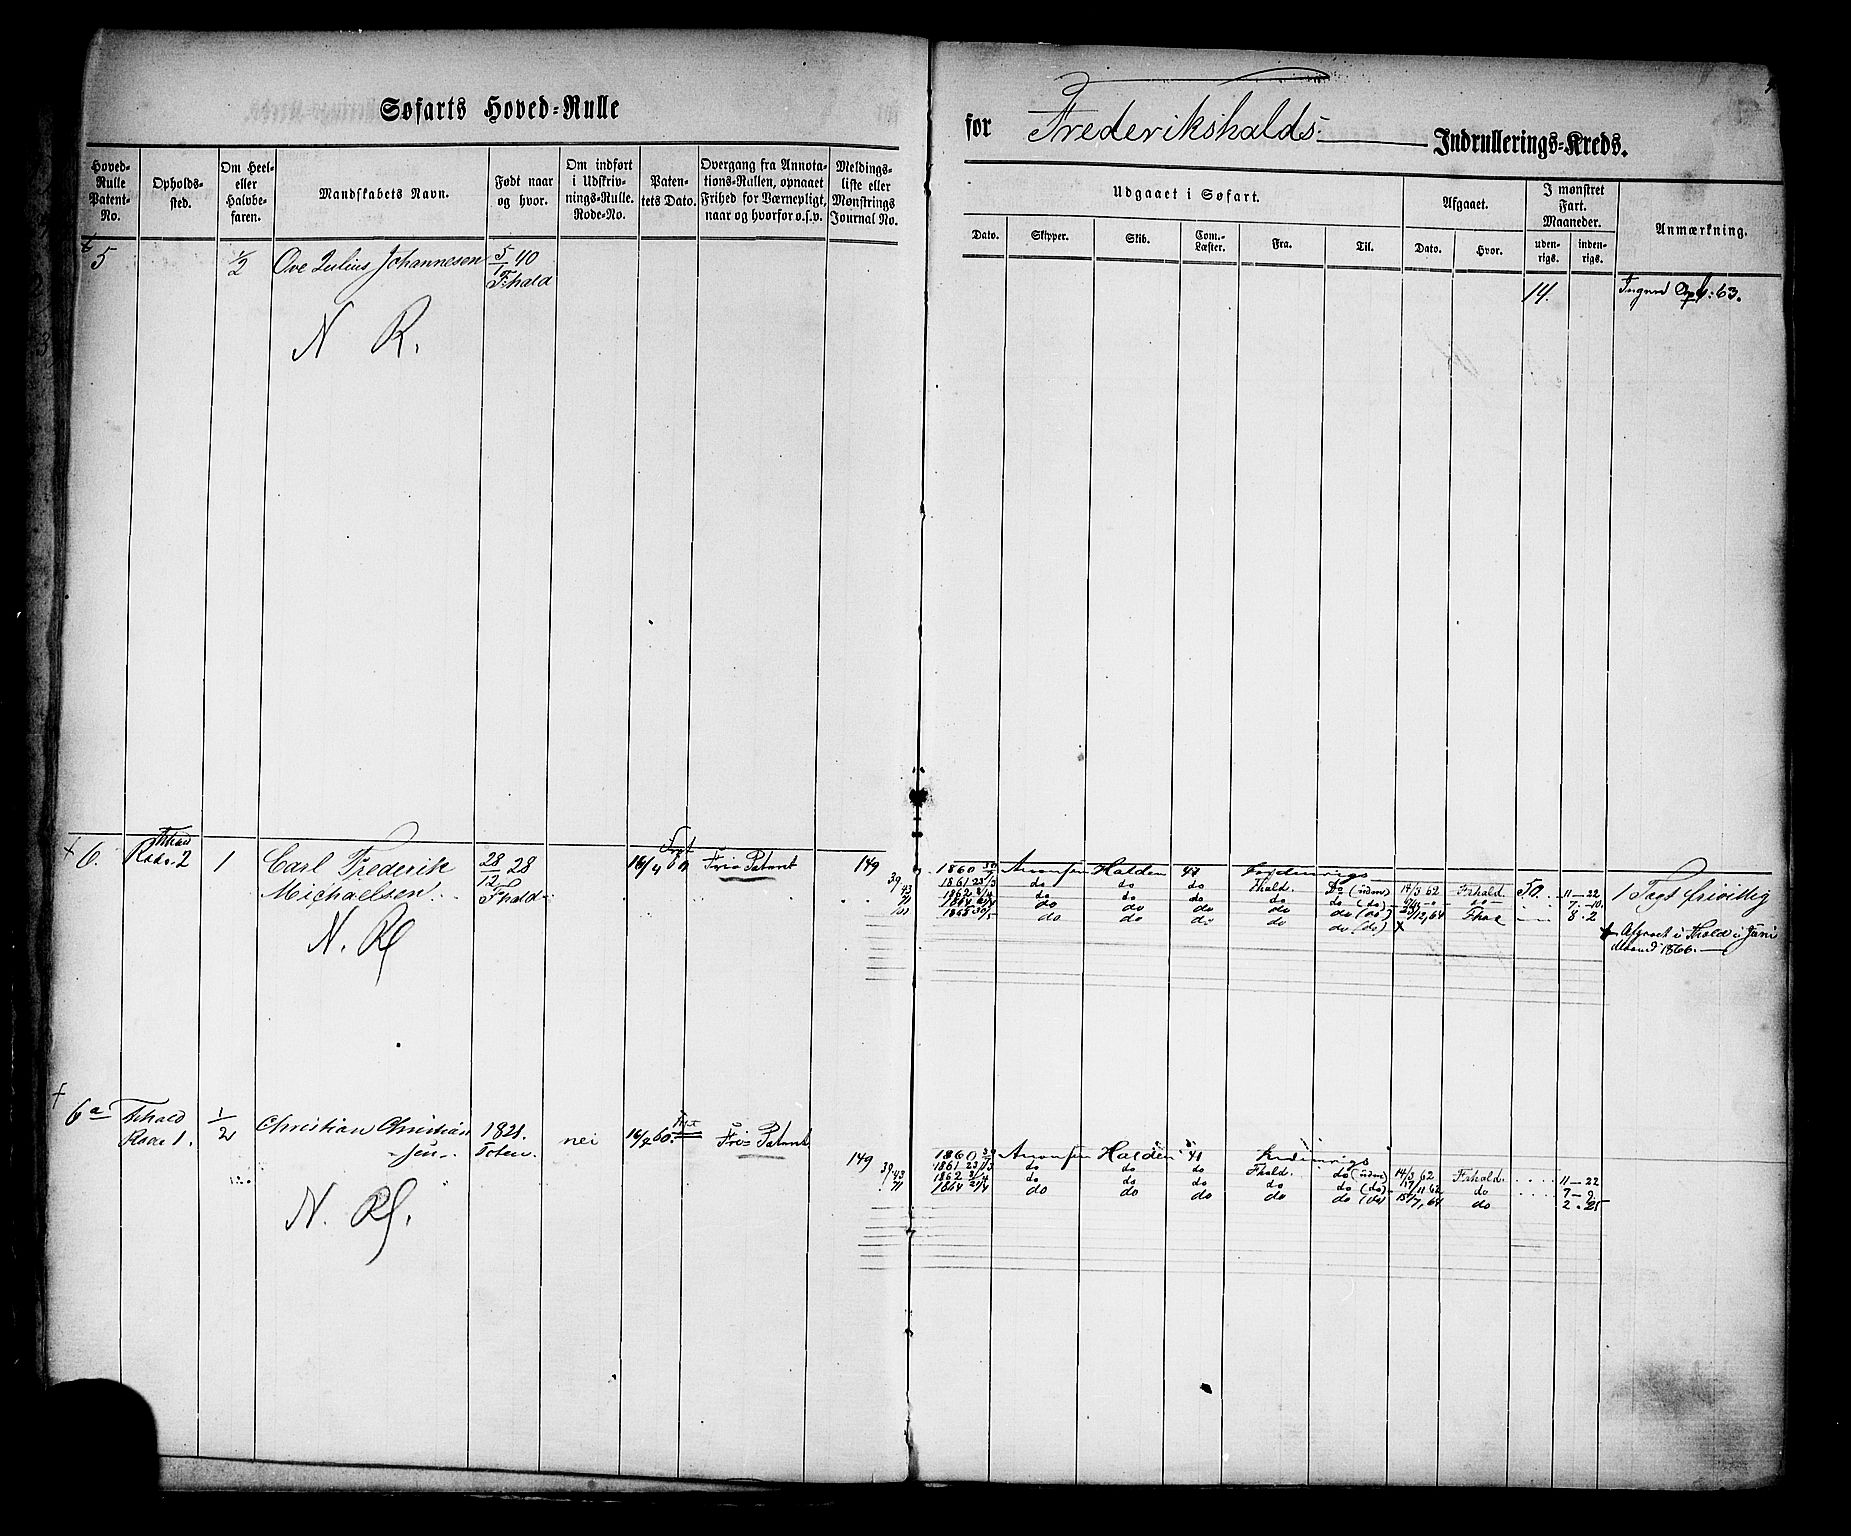 Søfarts Hoved-Rulle
for Frederikshalds Indrullerings-Kreds.
Hoved-Rulle Patent-No.
Opholds-sted.
Om Heel- eller Halvbe-faren.
Mandskabets Navn.
Født naar og hvor.
Om indført i Udskriv-nings-Rulle. Rode-No.
Paten-tets Dato.
Overgang fra Annota-tions-Rullen, opnaaet Frihed for Værnepligt, naar og hvorfor o.s.v.
Meldings-liste eller Mønstrings Journal No.
Udgaaet i Søfart.
Dato.
Skipper.
Skib.
Com.-Læster.
Fra.
Til.
Afgaaet.
Dato.
Hvor.
I mønstret Fart. Maaneder.
uden-rigs.
inden-rigs.
Anmærkning.
5
1/2
Ove Julius Johannesen
5/1 40
Fhald
N R.
14.
63.
6.
Fhald
Rode 2
1
Carl Frederik
Michaelsen
28/12 28
Fhald
16/4 60
Frie Patent
N. R
149
39
43
71
1860
1861 23/3
1862
1864
1865 30/5
Halden
do do do
do do do
do do do
do do do
Fhald. Do (uden) 14/3 62 Frhald. 50. 11-22
do do (do)
do do (do)
do do (do) X
7-10
8-2
1 Tagt frivillig
Afgaaet i Fhald i Juni
Maaned 1866.
6a
Frhald
Rode 1.
1/2
Christian Christian
sen
1821.
Toten.
nei
16/4 60.
Frie Patent
N. R.
149
39
43
71
1860
1861 23/3
1862
1864 21/4
Halden
do do do
do do do
do do do
Indenrigs
Fhald. do (uden) 14/3 62 Frhald. 11-22
do do (do) 17/11 62 do 7-2
do do (do) 15/7, 64 do 2-25